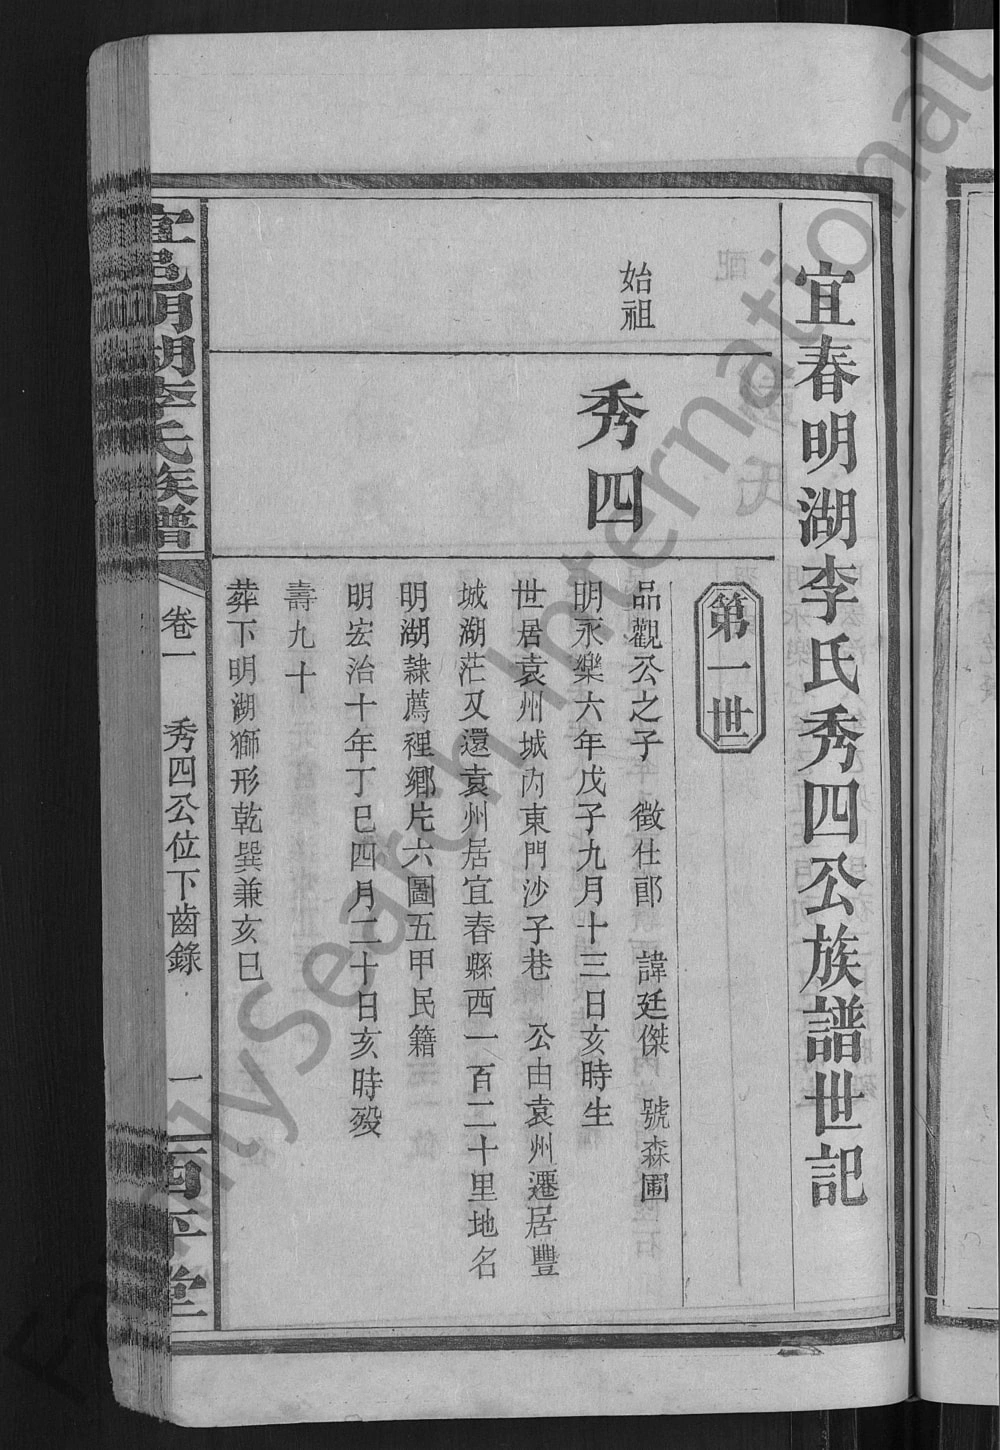 宜春明湖李氏秀四公族譜世記
第一世
始祖
秀四
品觀公之子 徵仕郎 諱廷傑 號森圃
明永樂六年戊子九月十三日亥時生
世居袁州城內東門沙子巷 公由袁州遷居豐
城湖茫又還袁州居宜春縣西一百二十里地名
明湖隸薦裡鄉片六圖五甲民籍
明宏治十年丁巳四月二十日亥時殁
壽九十
葬下明湖獅形乾巽兼亥巳
宜邑明湖李氏族譜
卷一
秀四公位下齒錄
一
西平堂
FamilySearch International